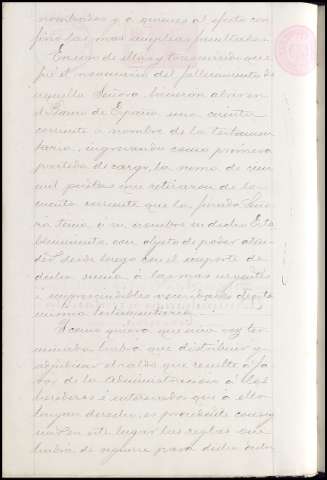 nombrados y á quienes al efecto con
firió las mas amplias facultades.
En uso de ellas, y transcurrido que
fué el novenario del fallecimiento de
aquella Señora, hicieron abrir en
el Banco de España una cuenta
corriente á nombre de la testamen
taria, ingresando como primera
partida de cargo, la suma de cien
mil pesetas que retiraron de la
cuenta corriente que la finada Seño
ra tenia á su nombre en dicho Esta
blecimiento, con objeto de poder aten
der desde luego con el importe de
dicha suma á las mas urgentes
é imprescindibles necesidades de esta
misma testamentaria.
Y como quiera que una vez ter
minada habrá que distribuir y
adjudicar el saldo que resulte á fa
vor de la Administracion á los
herederos é interesados que á ello
tengan derecho, es procedente consig
nar en este lugar las reglas que
habrán de seguirse para dicha